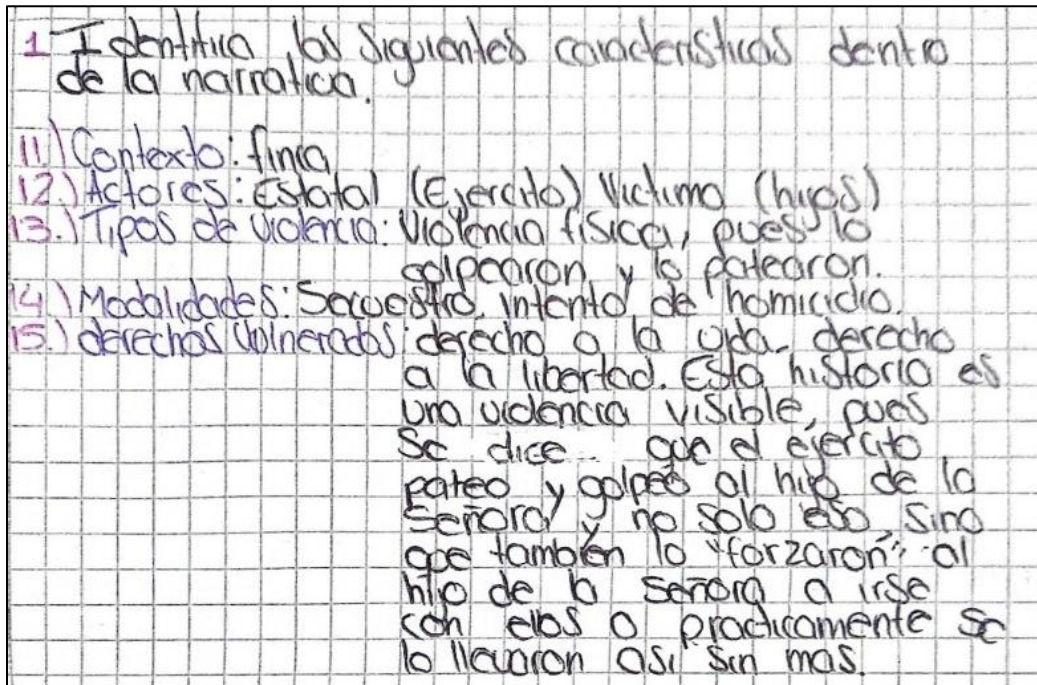 1 Identifica las siguientes características dentro
de la narratica.
11.) Contexto: finca
12.) Actores: Estatal (Ejercito) Victima (hijos)
13.) Tipos de violencia: Violencia física, pues lo
golpearon y lo patearon.
14.) Modalidades: Secuestro, intento de homicidio.
15.) derechos vulnerados: derecho a la vida, derecho
a la libertad. Esta historia es
una violencia visible, pues
se dice que el ejercito
pateo y golpeó al hijo de la
señora y no solo eso, sino
que también lo "forzaron" al
hijo de la señora a irse
con ellos o practicamente se
lo llevaron asi sin mas.